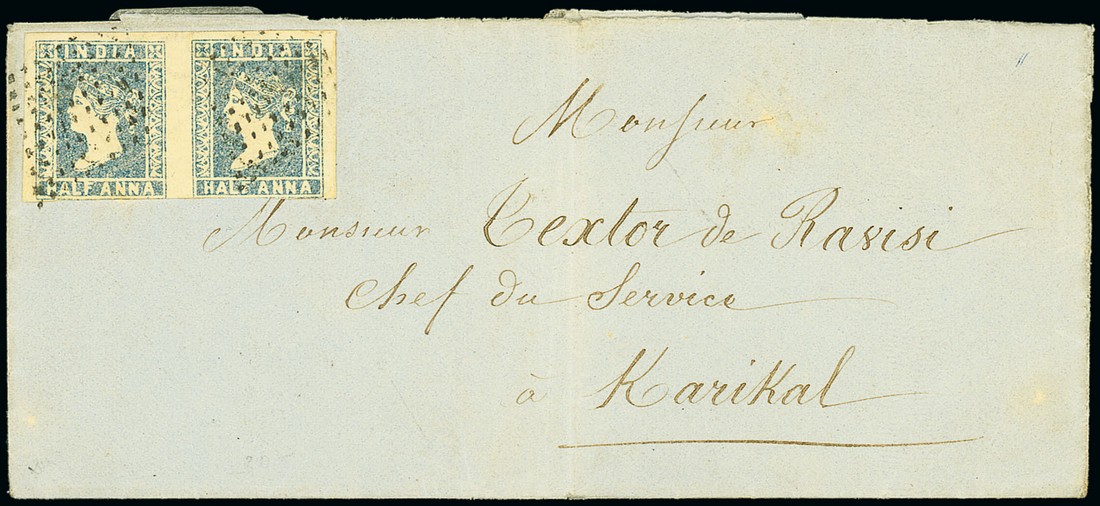 INDIA INDIA
HALF ANNA HALF ANNA
Monsieur
Monsieur Textor de Ravisi
Chef du Service
à Karikal